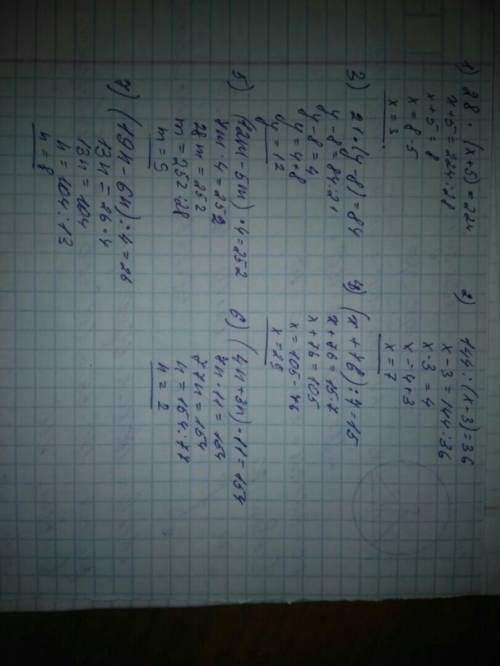 1) 28 · (x+5)=224
x+5 = 224:28
x+5 = 8
x = 8-5
x = 3
2) 144 : (x-3)=36
x-3 = 144:36
x-3 = 4
x = 4+3
x = 7
3) 21·(y-8)=84
y-8=84:21
y-8=4
y=4+8
y=12
4) (x+76):7=15
x+76=15·7
x+76=105
x=105-76
x=29
5) (12m-5m)·4=252
7m·4=252
28m=252
m=252:28
m=9
6) (4n+3n)·11=154
7n·11=154
77n=154
n=154:77
n=2
7) (19n-6n):4=26
13n=26·4
13n=104
n=104:13
n=8